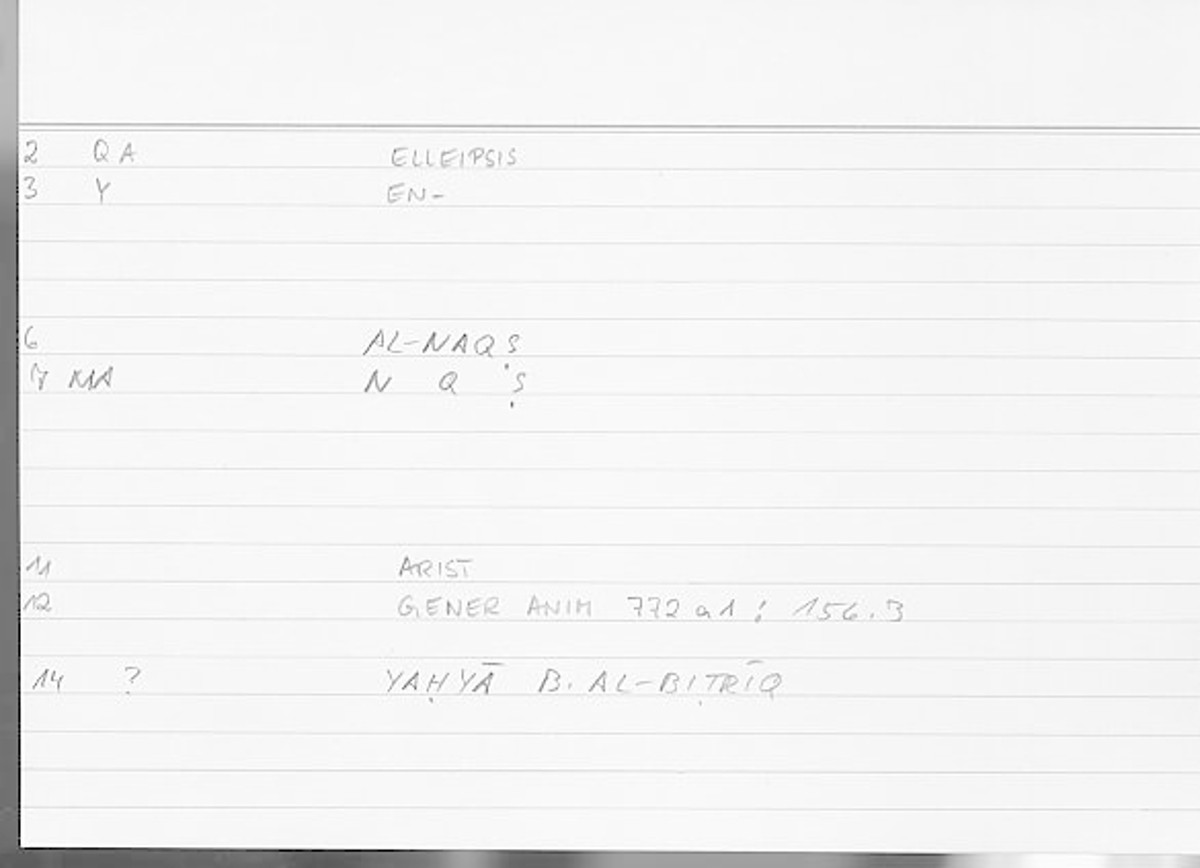 2 QA ELLEIPSIS
3 Y EN-
6 AL-NAQṢ
7 MA N Q Ṣ
11 ARIST
12 GENER ANIM 772 a1 ; 156.3
14 ? YAḤYĀ B. AL-BIṬRĪQ